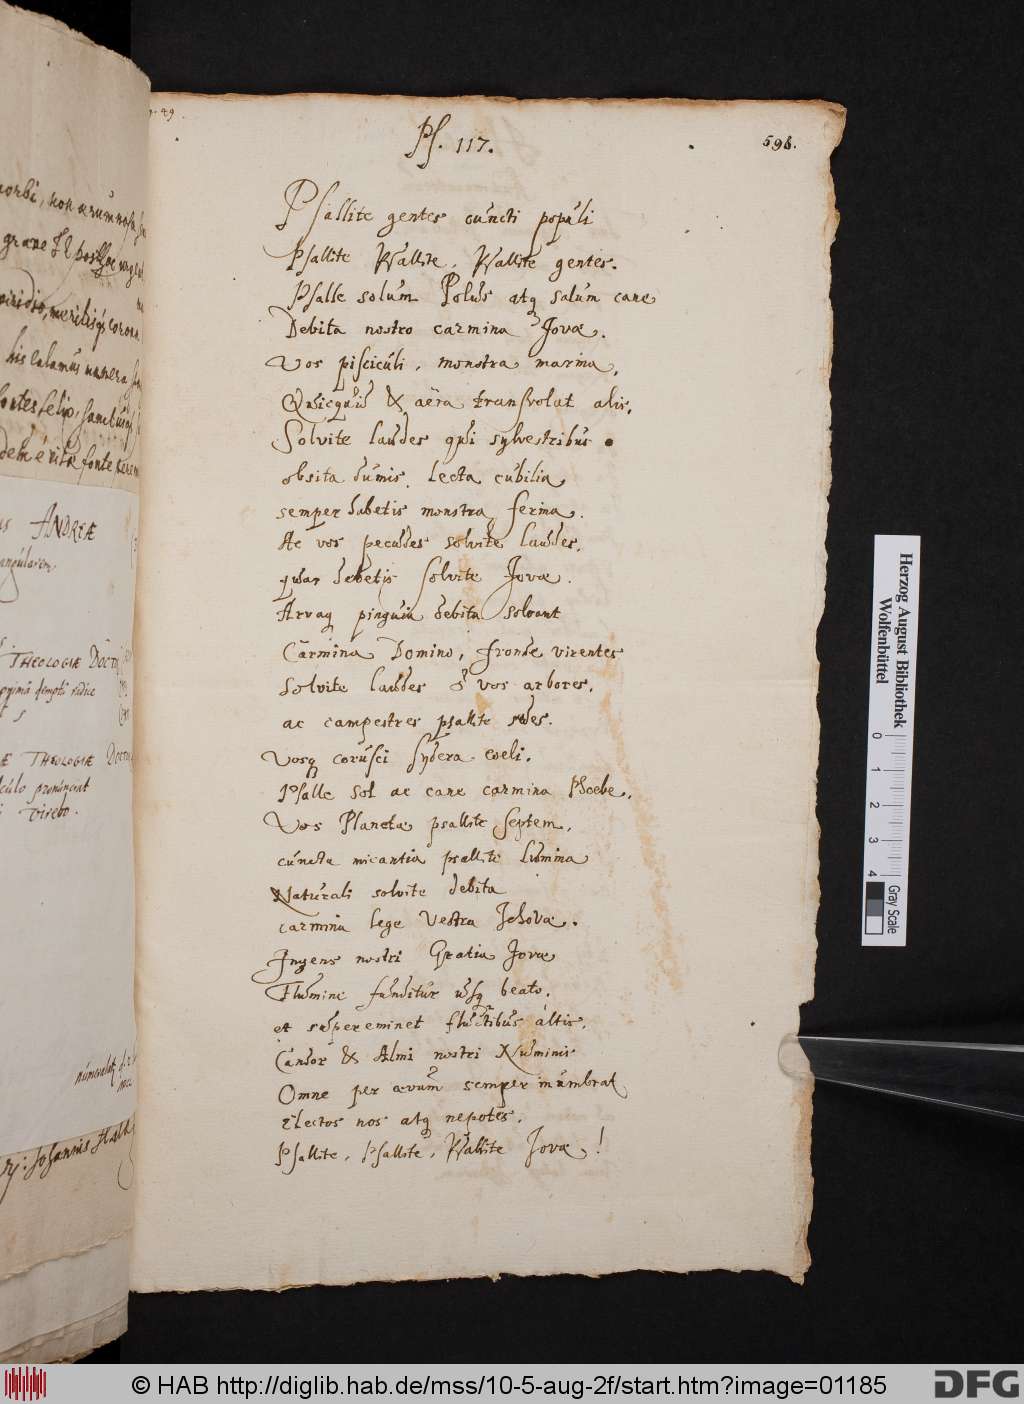 Ps. 117.
596.
Psallite gentes cuncti populi
Psallite Psallite, Psallite gentes.
Psalle solum Polus atq salum cane
Debita nostro carmina Jovæ.
Vos pisciculi, monstra marina,
Quicquid & aëra transvolat alis,
Solvite laudes qui sylvestribus
obsita dumis, lecta cubilia
semper habetis monstra ferina.
Ac vos pecudes solvite laudes,
quas debetis solvite Jovæ.
Arvaq pinguia debita solvant
Carmina Domino, fronde virentes
Solvite laudes & vos arbores,
ac campestres psallite
Vosq corusci sydera coeli.
Psalle Sol ac cane carmina Phoebe,
Vos Planetæ psallite septem,
cuncta micantia psallite lumina
Naturali solvite debita
carmina lege vestra Jehovæ.
Ingens nostri Gratia Jovæ
Flumine funditur usq beato,
et supereminet fluctibus altis,
Candor & Almi nostri Numinis
Omne per ævum semper inumbrat
Electos nos atq nepotes.
Psallite, Psallite, Psallite Jovæ!
ANDREÆ
THEOLOGIÆ
THEOLOGIÆ
virebo.
Johannis
Herzog August Bibliothek
Wolfenbüttel
0 1 2 3 4
Gray Scale
© HAB http://diglib.hab.de/mss/10-5-aug-2f/start.htm?image=01185
DFG